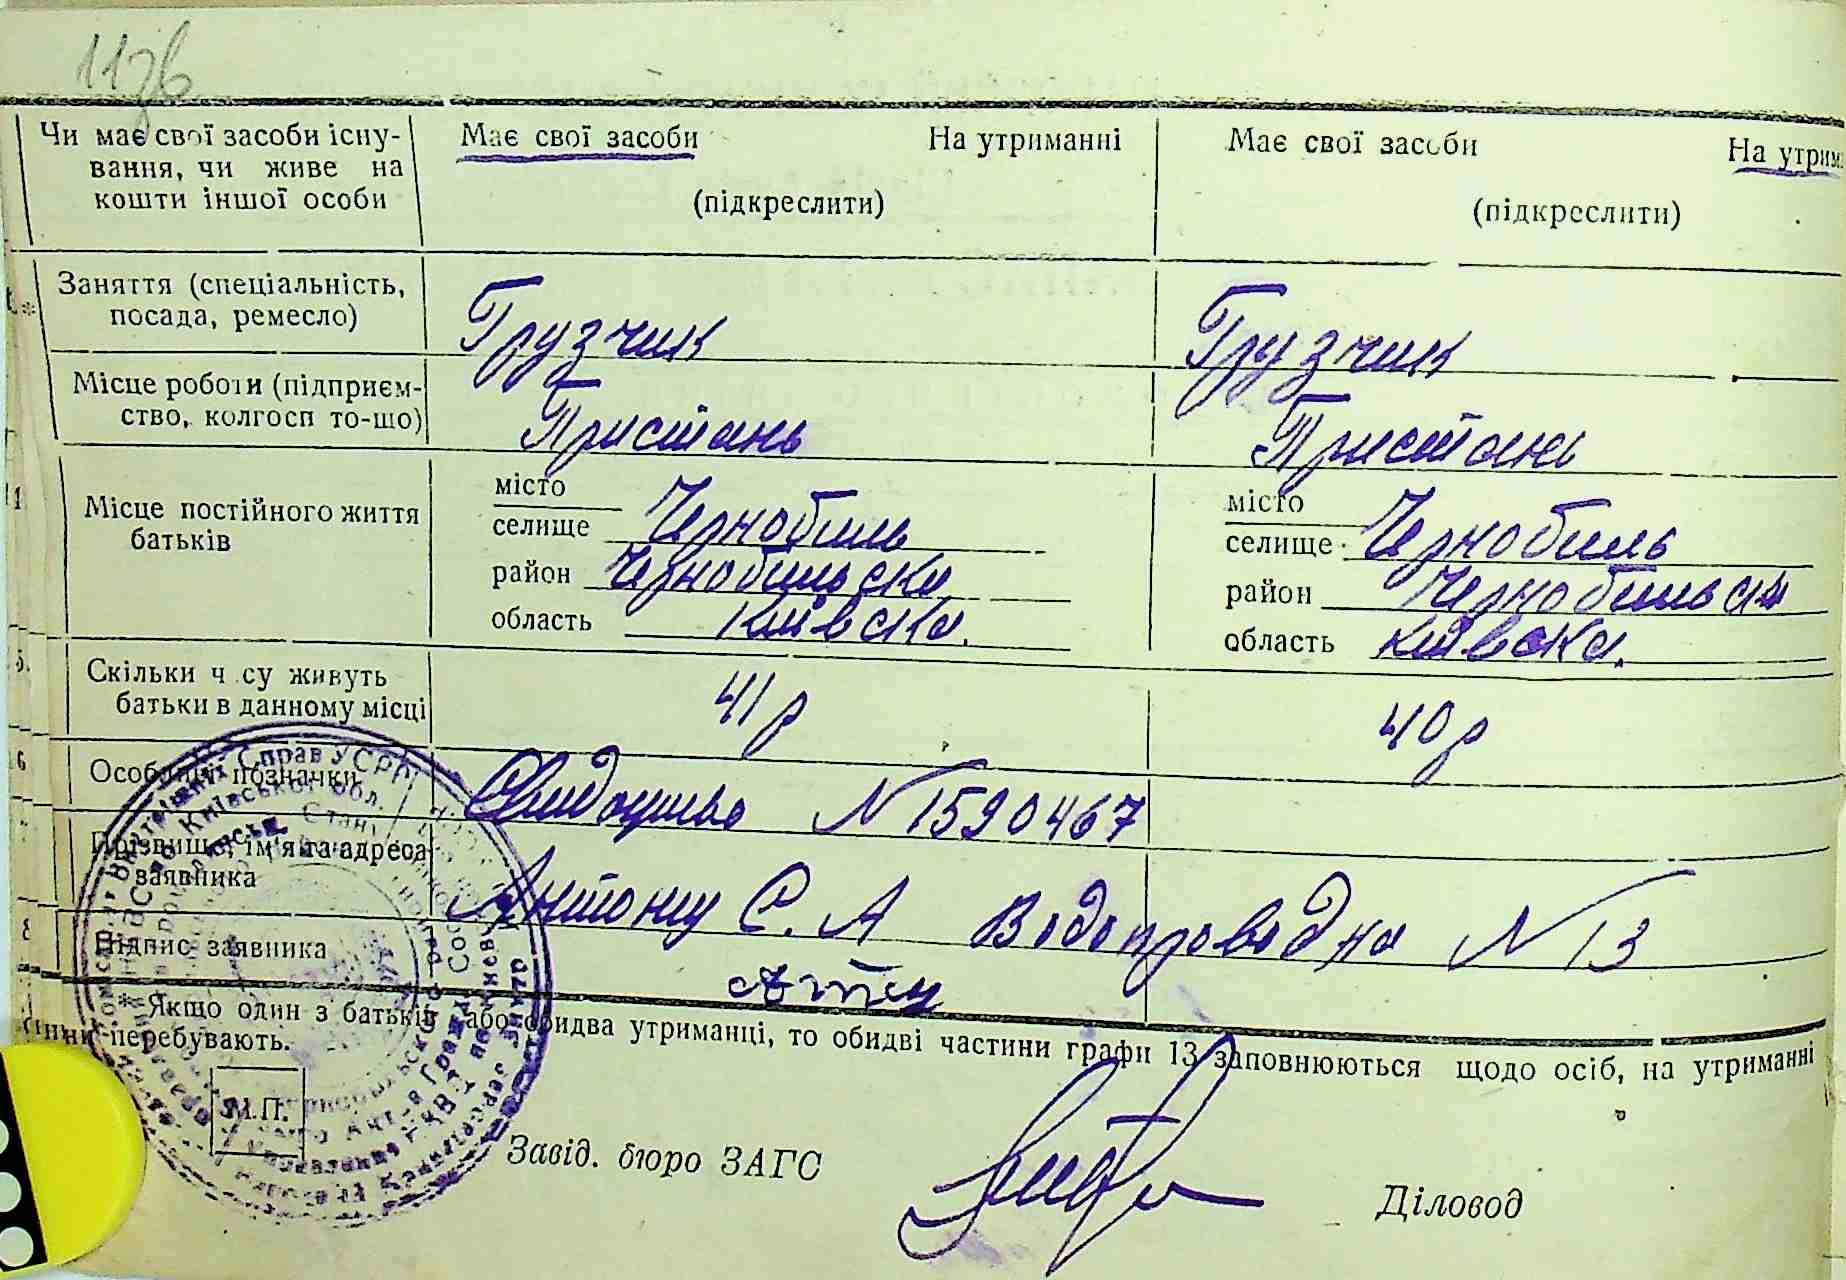 Чи має свої засоби існу-
вання, чи живе на
кошти іншої особи
Має свої засоби На утриманні
(підкреслити)
Має свої засоби На утрим
(підкреслити)
Заняття (спеціальність,
посада, ремесло)
Грузчик
Грузчик
Місце роботи (підприєм-
ство, колгосп то-що)
Пристань
Пристань
Місце постійного життя
батьків
місто
селище Чернобиль
район Чернобильски
область київска.
місто
селище Чернобиль
район Чернобильски
область київска.
Скільки ч су живуть
батьки в данному місці
41 р
40 р
Особливі позначки
N 1590467
Прізвище, ім'я та адреса
заявника
С. А Водопроводна N 13
Підпис заявника
* Якщо один з батьків або обидва утриманці, то обидві частини графи 13 заповнюються щодо осіб, на утриманні
перебувають.
М.П.
Завід. бюро ЗАГС
Діловод